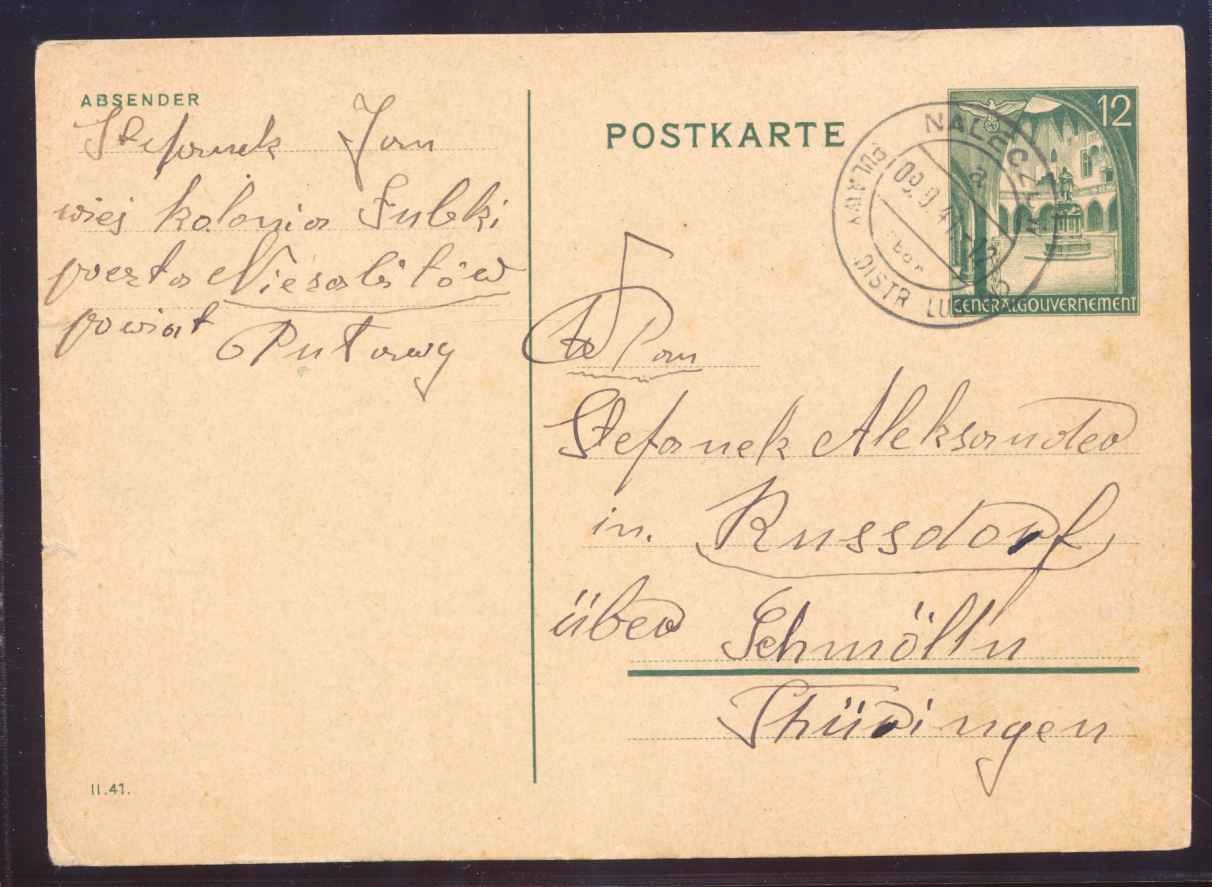 ABSENDER
Stefanek Jan
wieś kolonia Łubki
poczta Niezabitów
powiat Puławy
II.41.
POSTKARTE
12
GENERALGOUVERNEMENT
NAŁĘCZÓW
PULAWY DISTR LUBLIN
Pan
Stefanek Aleksander
in. Russdorf
über Schmölln
Thüringen